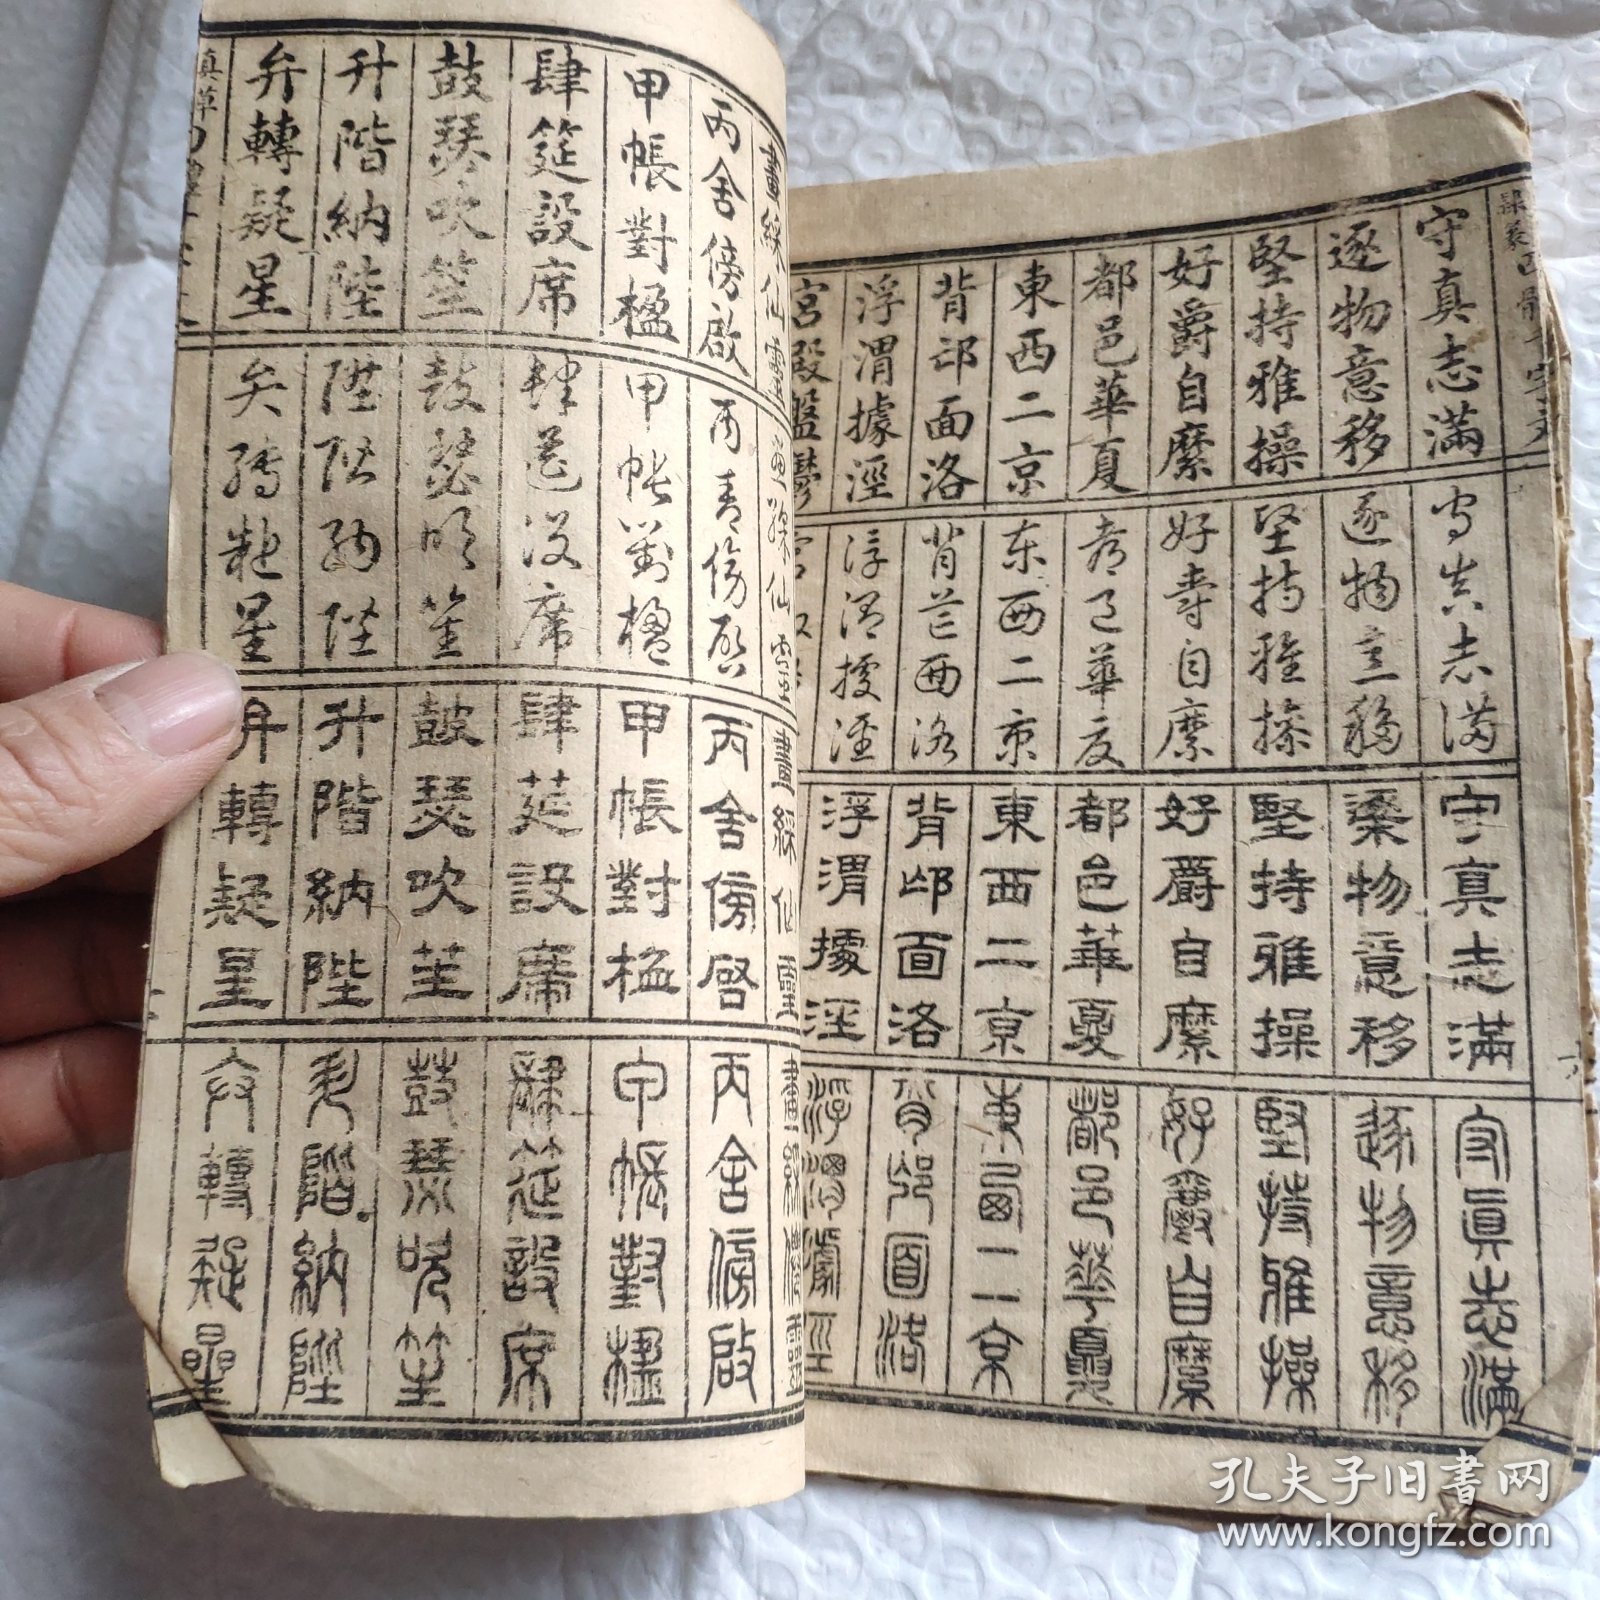 隸篆四體千字文
守真志滿
逐物意移
堅持雅操
好爵自縻
都邑華夏
東西二京
背邙面洛
浮渭據涇
宮殿盤鬱
守真志滿
逐物意移
堅持雅操
好爵自縻
都邑華夏
東西二京
背邙面洛
浮渭據涇
宮
守真志滿
逐物意移
堅持雅操
好爵自縻
都邑華夏
東西二京
背邙面洛
浮渭據涇
守真志滿
逐物意移
堅持雅操
好爵自縻
都邑華夏
東西二京
背邙面洛
浮渭據涇
六
畫綵仙靈
丙舍傍啟
甲帳對楹
肆筵設席
鼓瑟吹笙
升階納陛
弁轉疑星
畫綵仙靈
丙舍傍啟
甲帳對楹
肆筵設席
鼓瑟吹笙
陞階納陛
弁轉疑星
畫綵仙靈
丙舍傍啓
甲帳對楹
肆筵設席
鼓瑟吹笙
升階納陛
弁轉疑星
畫綵僊靈
丙舍傍啟
甲帳對楹
肆筵設席
鼓瑟吹笙
升階納陛
弁轉疑星
真草
孔夫子旧书网
www.kongfz.com